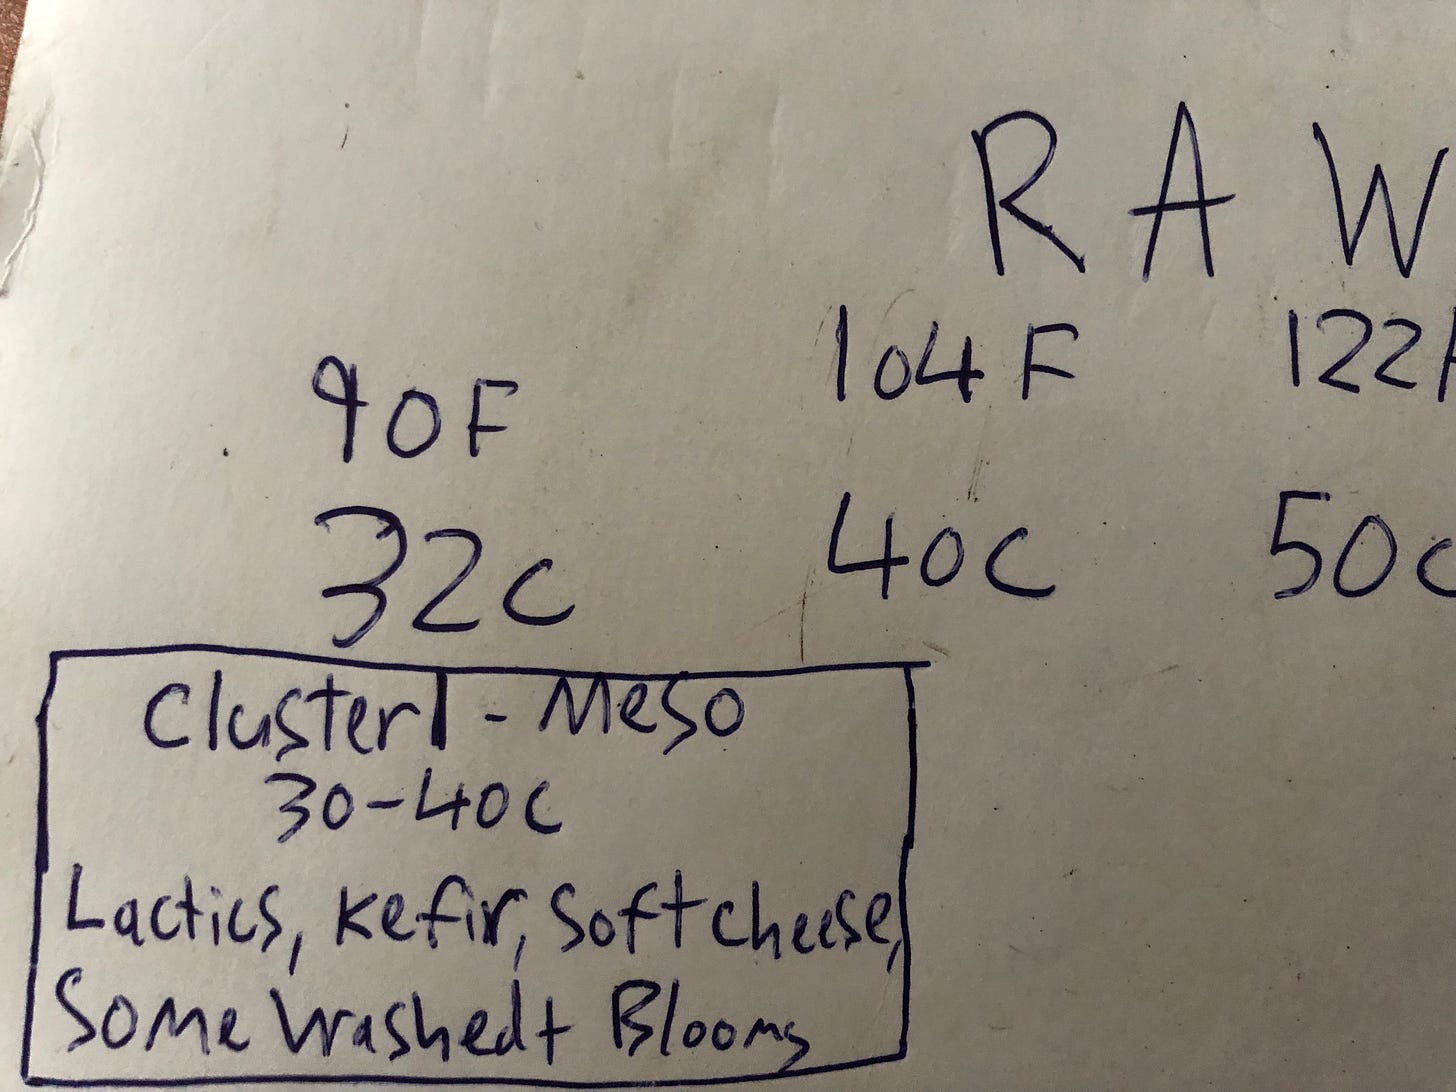 RAW
104F 122F
90F
32C 40C 50C
Cluster 1 - Meso
30-40C
Lactics, Kefir, Soft cheese,
Some Washed + Blooms